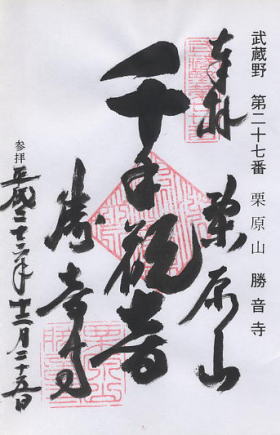 武蔵野 第二十七番 栗原山 勝音寺
奉拝 栗原山
千手観音
勝音寺
参拝 平成二十二年十二月二十五日